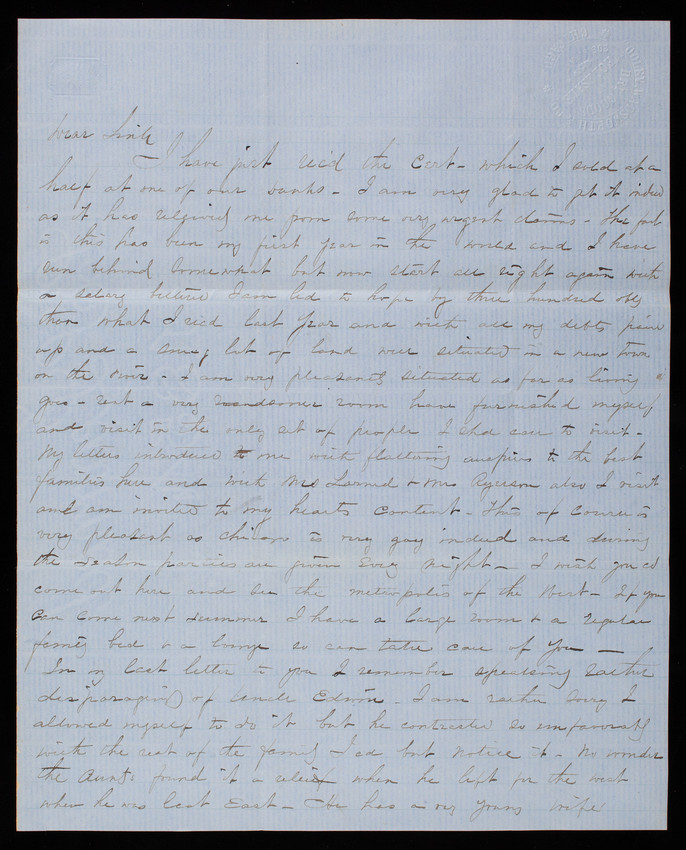 Dear
I have just rec'd the Cert - which I sold at a
half at one of our banks - I am very glad to get it indeed
as it has relieved me from some very urgent claims - The fact
is this has been my first year in the world and I have
run behind somewhat but now start all right again with
a salary better I am led to hope by three hundred
than what I rec'd last year and with all my debts
up and a lot of land well situated in a new town
on the river - I am very pleasantly situated as far as living
goes - rent a very handsome room have furnished myself
and visit in the only set of people I shd care to visit -
My letters introduced me with flattering auspices to the best
families here and with Mrs Larned & Mrs also I visit
and am invited to my hearts content - This of course is
very pleasant as Chicago is very gay indeed and during
the season parties are given every night - I wish you cd
come out here and see the metropolis of the West - If you
can come next summer I have a large room & a regular
family bed & a lounge so can take care of you -
In my last letter to you I remember speaking rather
disparagingly of Uncle Edwin. I am rather sorry I
allowed myself to do it but he contrasted so unfavorably
with the rest of the family I cd but notice it - No wonder
the Aunts found it a relief when he left for the west
when he was last East - He has a very young wife